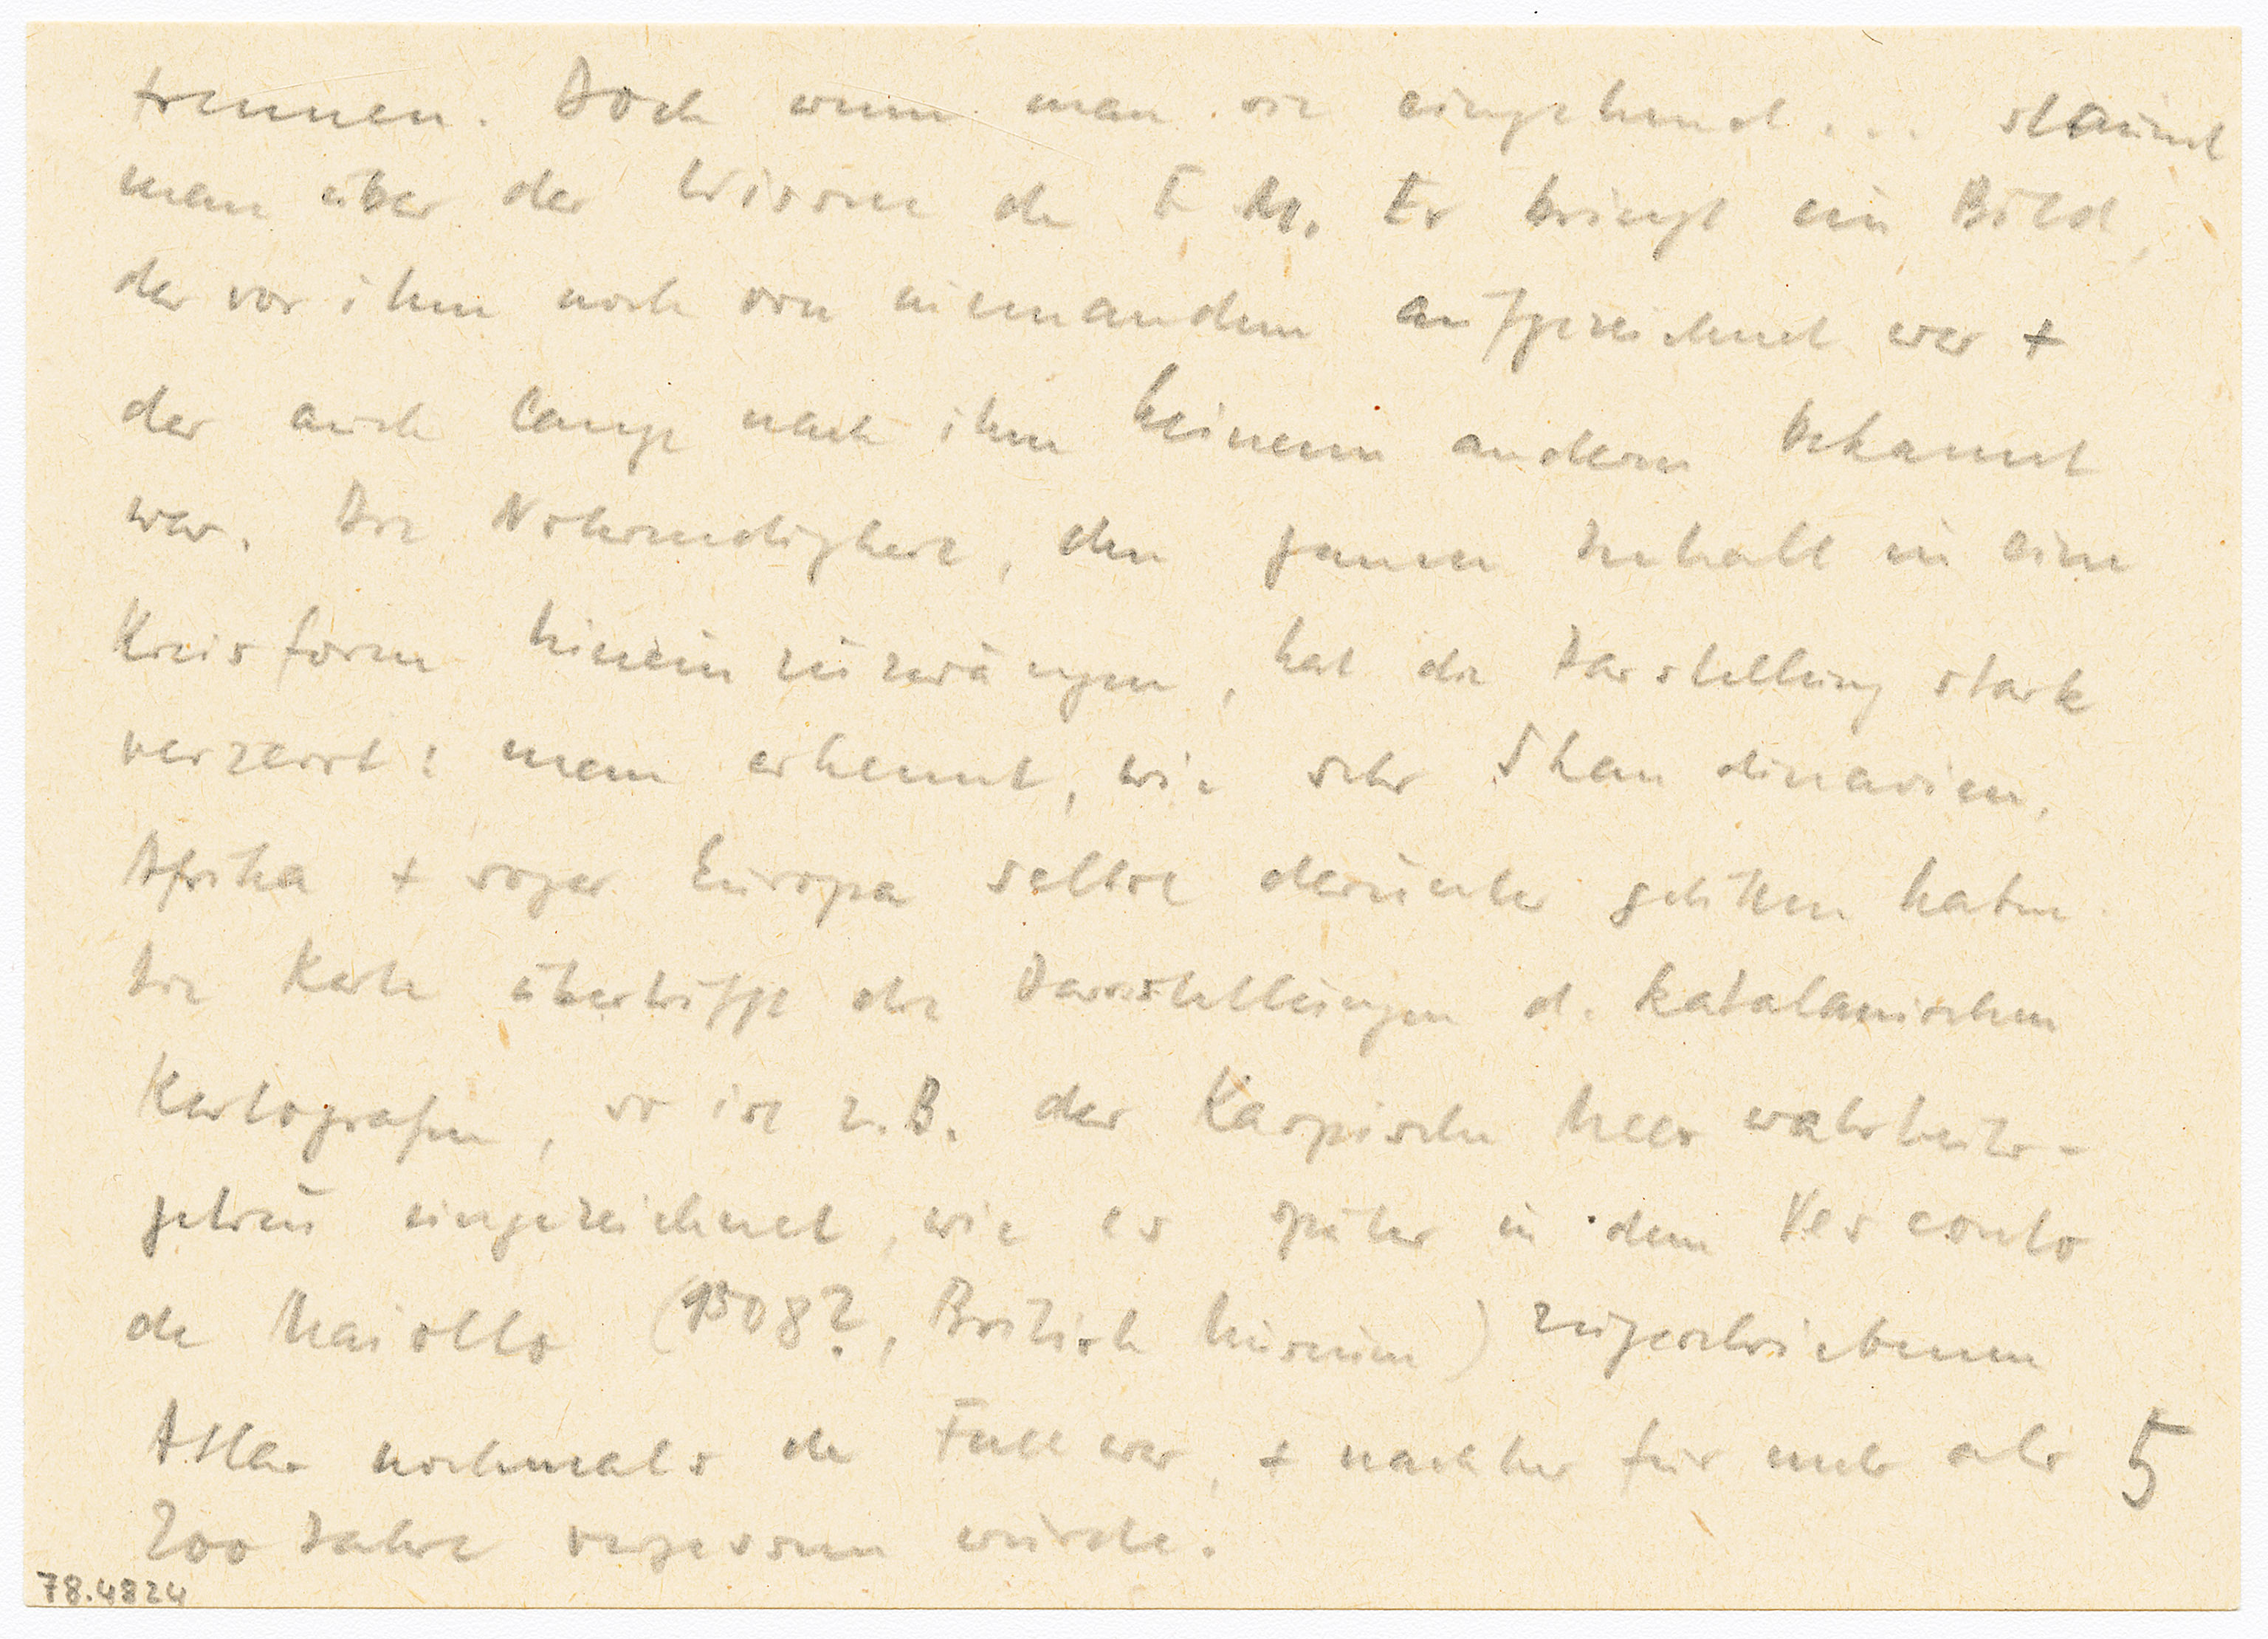 trennen. Doch wenn man sie eingehend... staunt
man über das Wissen de F. M. Er bringt ein Bild,
das vor ihm noch von niemandem aufgezeichnet war +
das auch lange nach ihm keinem andern bekannt
war. Die Notwendigkeit, den ganzen Inhalt in eine
Kreisform hineinzuzwängen, hat die Darstellung stark
verzerrt: man erkennt, wie sehr Skandinavien,
Afrika + sogar Europa selbst darunter gelitten haben.
Die Karte übertrifft die Darstellungen d. katalanischen
Kartografen, so ist z.B. das Kaspische Meer wahrheits-
getreu eingezeichnet, wie es später in dem Vesconto
de Maiollo (1508?, British Museum) zugeschriebenen
Atlas nochmals de Fall war, + nachher für mehr als
200 Jahre vergessen wurde.
5
78.4824